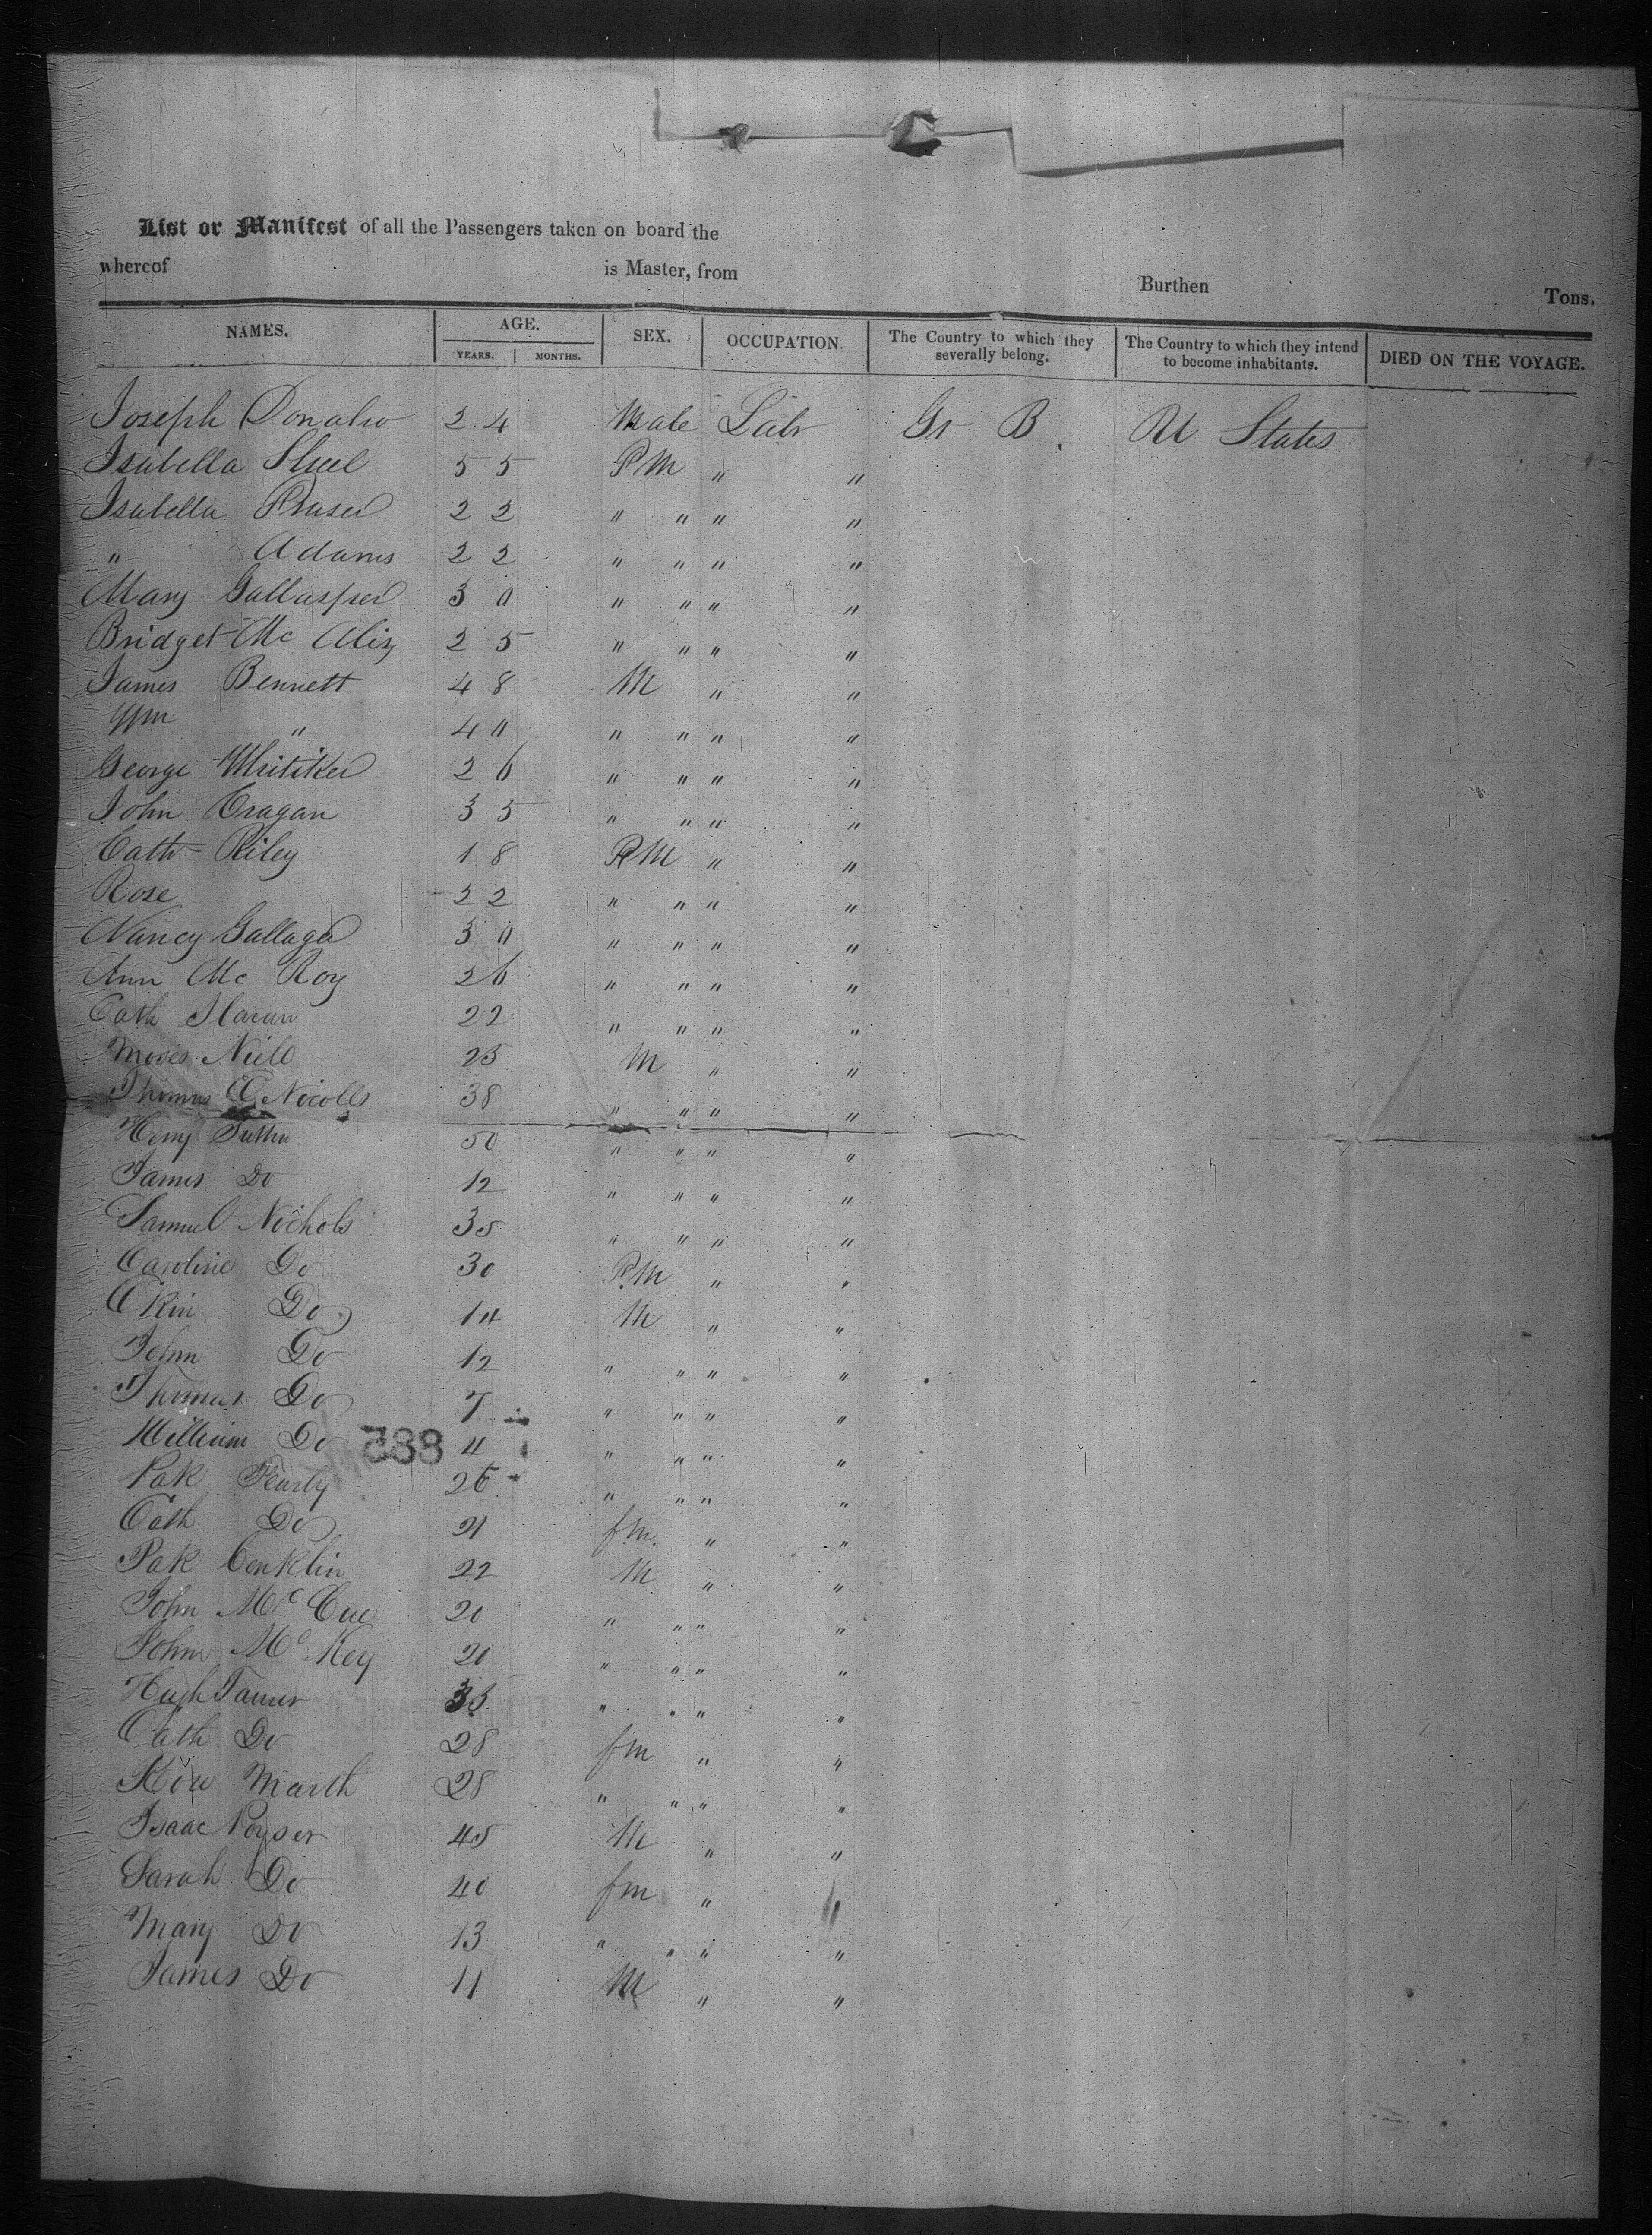 List or Manifest of all the Passengers taken on board the
whereof is Master, from Burthen Tons.
NAMES. AGE. SEX. OCCUPATION. The Country to which they severally belong. The Country to which they intend to become inhabitants. DIED ON THE VOYAGE.
YEARS. MONTHS.
Joseph Donaho 24 Male Labr Gr B. U States
Isabella 55 FM " "
Isabella Fraser 22 " " " "
" Adams 22 " " " "
Mary 30 " " " "
Bridget Mc 25 " " " "
James Bennett 48 M " "
Wm " 40 " " " "
George Whitiker 26 " " " "
John Cragan 35 " " " "
Cath Riley 18 FM " "
Rose 22 " " " "
Nancy Gallager 30 " " " "
Ann Mc Roy 26 " " " "
Cath 22 " " " "
Moses Niell 25 M " "
Thomas Nicolls 38 " " " "
Henry 50 " " " "
James Do 12 " " " "
Samuel Nichols 35 " " " "
Caroline Do 30 FM " "
Do 14 M " "
John Do 12 " " " "
Thomas Do 7 " " " "
William Do 4 " " " "
588
Pak 26 " " " "
Cath Do 21 fm. " "
Pak Conklin 22 M " "
John Mc Cue 20 " " " "
John Mc Key 20 " " " "
Hugh 35 " " " "
Cath Do 28 fm " "
Marth 28 " " " "
Isaac Poyser 45 M " "
Sarah Do 40 fm " "
Mary Do 13 " " " "
James Do 11 M " "